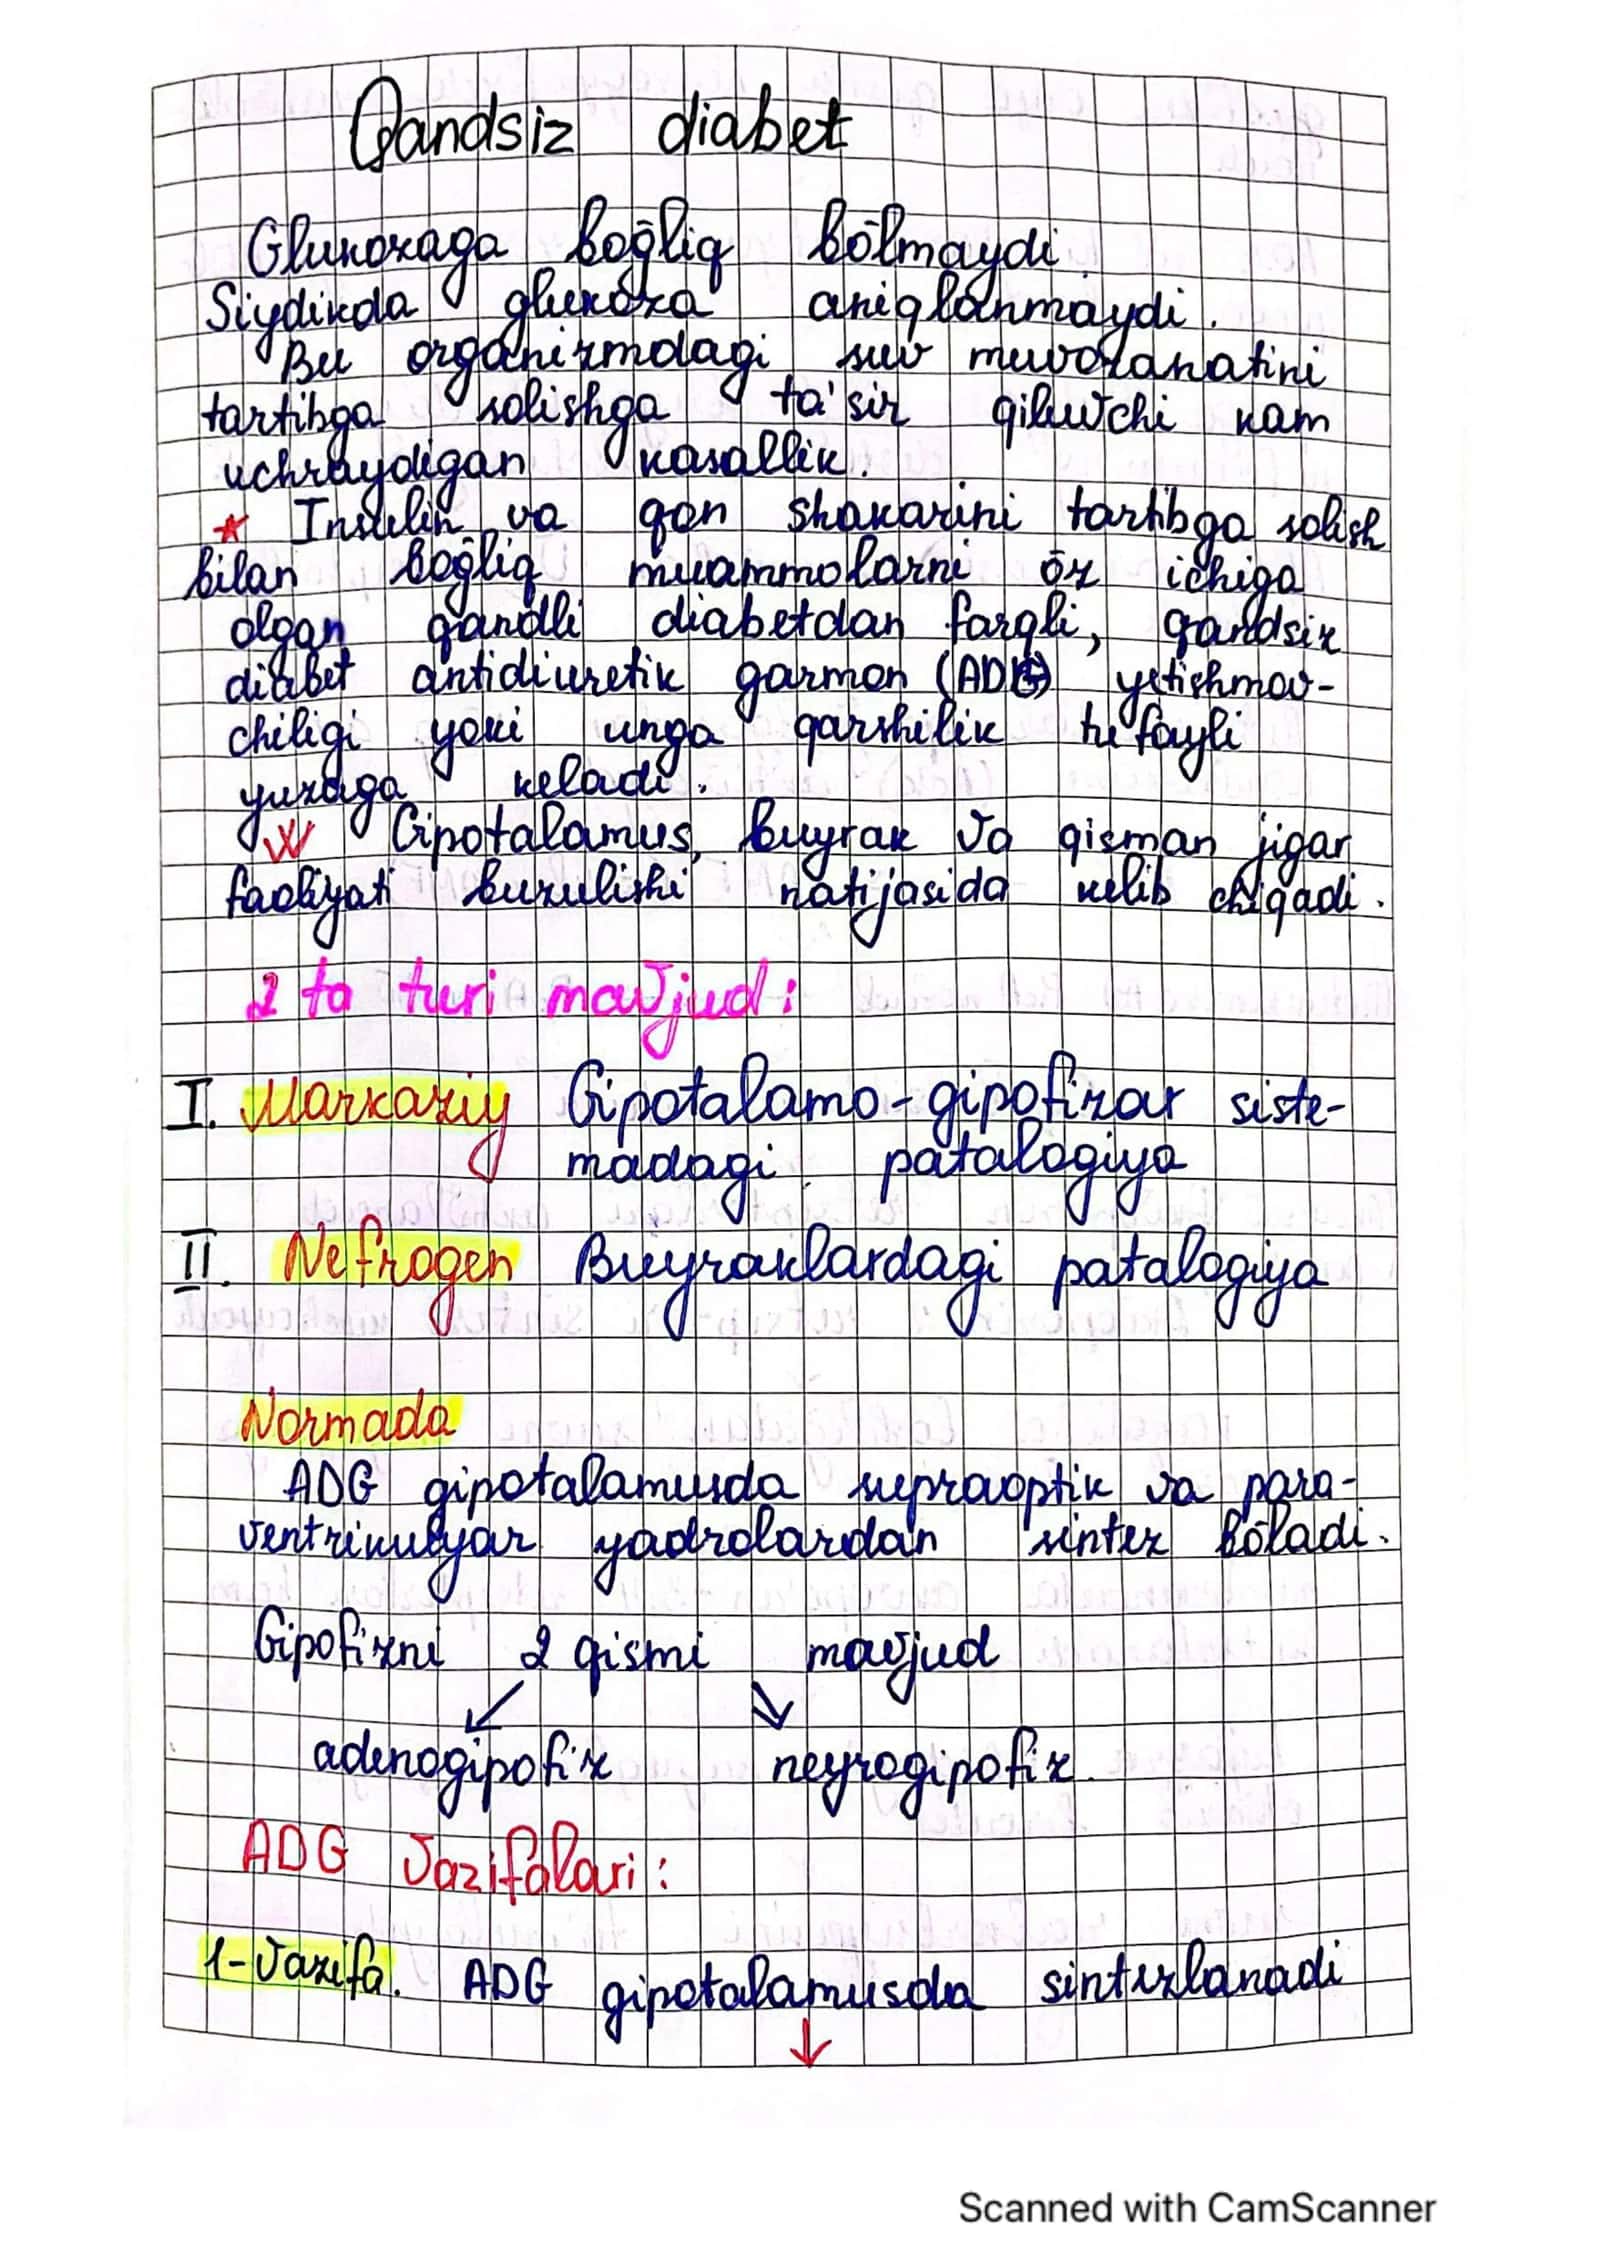 Qandsiz diabet
Glukozaga bogʻliq bōlmaydi.
Siydikda glukoza aniqlanmaydi.
Bu organizmdagi suv muvozanatini
tartibga solishga ta'sir qiluvchi kam
uchraydigan kasallik.
* Insulin va qon shakarini tartibga solish
bilan bogʻliq muammolarni ōz ichiga
olgan qandli diabetdan farqli, qandsiz
diabet antidiuretik garmon (ADG) yetishmov-
chiligi yoki unga qarshilik tufayli
yuzaga keladi.
Gipotalamus, buyrak va qisman jigar
faoliyati buzulishi natijasida kelib chiqadi.
2 ta turi mavjud:
I. Markaziy Gipotalamo-gipofizar siste-
madagi patalogiya
II. Nefrogen Buyraklardagi patalogiya
Normada
ADG gipotalamusda supraoptik va para-
ventrikulyar yadrolardan sintez bōladi.
Gipofizni 2 qismi mavjud
↙ ↘
adenogipofiz neyrogipofiz.
ADG vazifalari:
1-vazifa. ADG gipotalamusda sintezlanadi
↓
Scanned with CamScanner